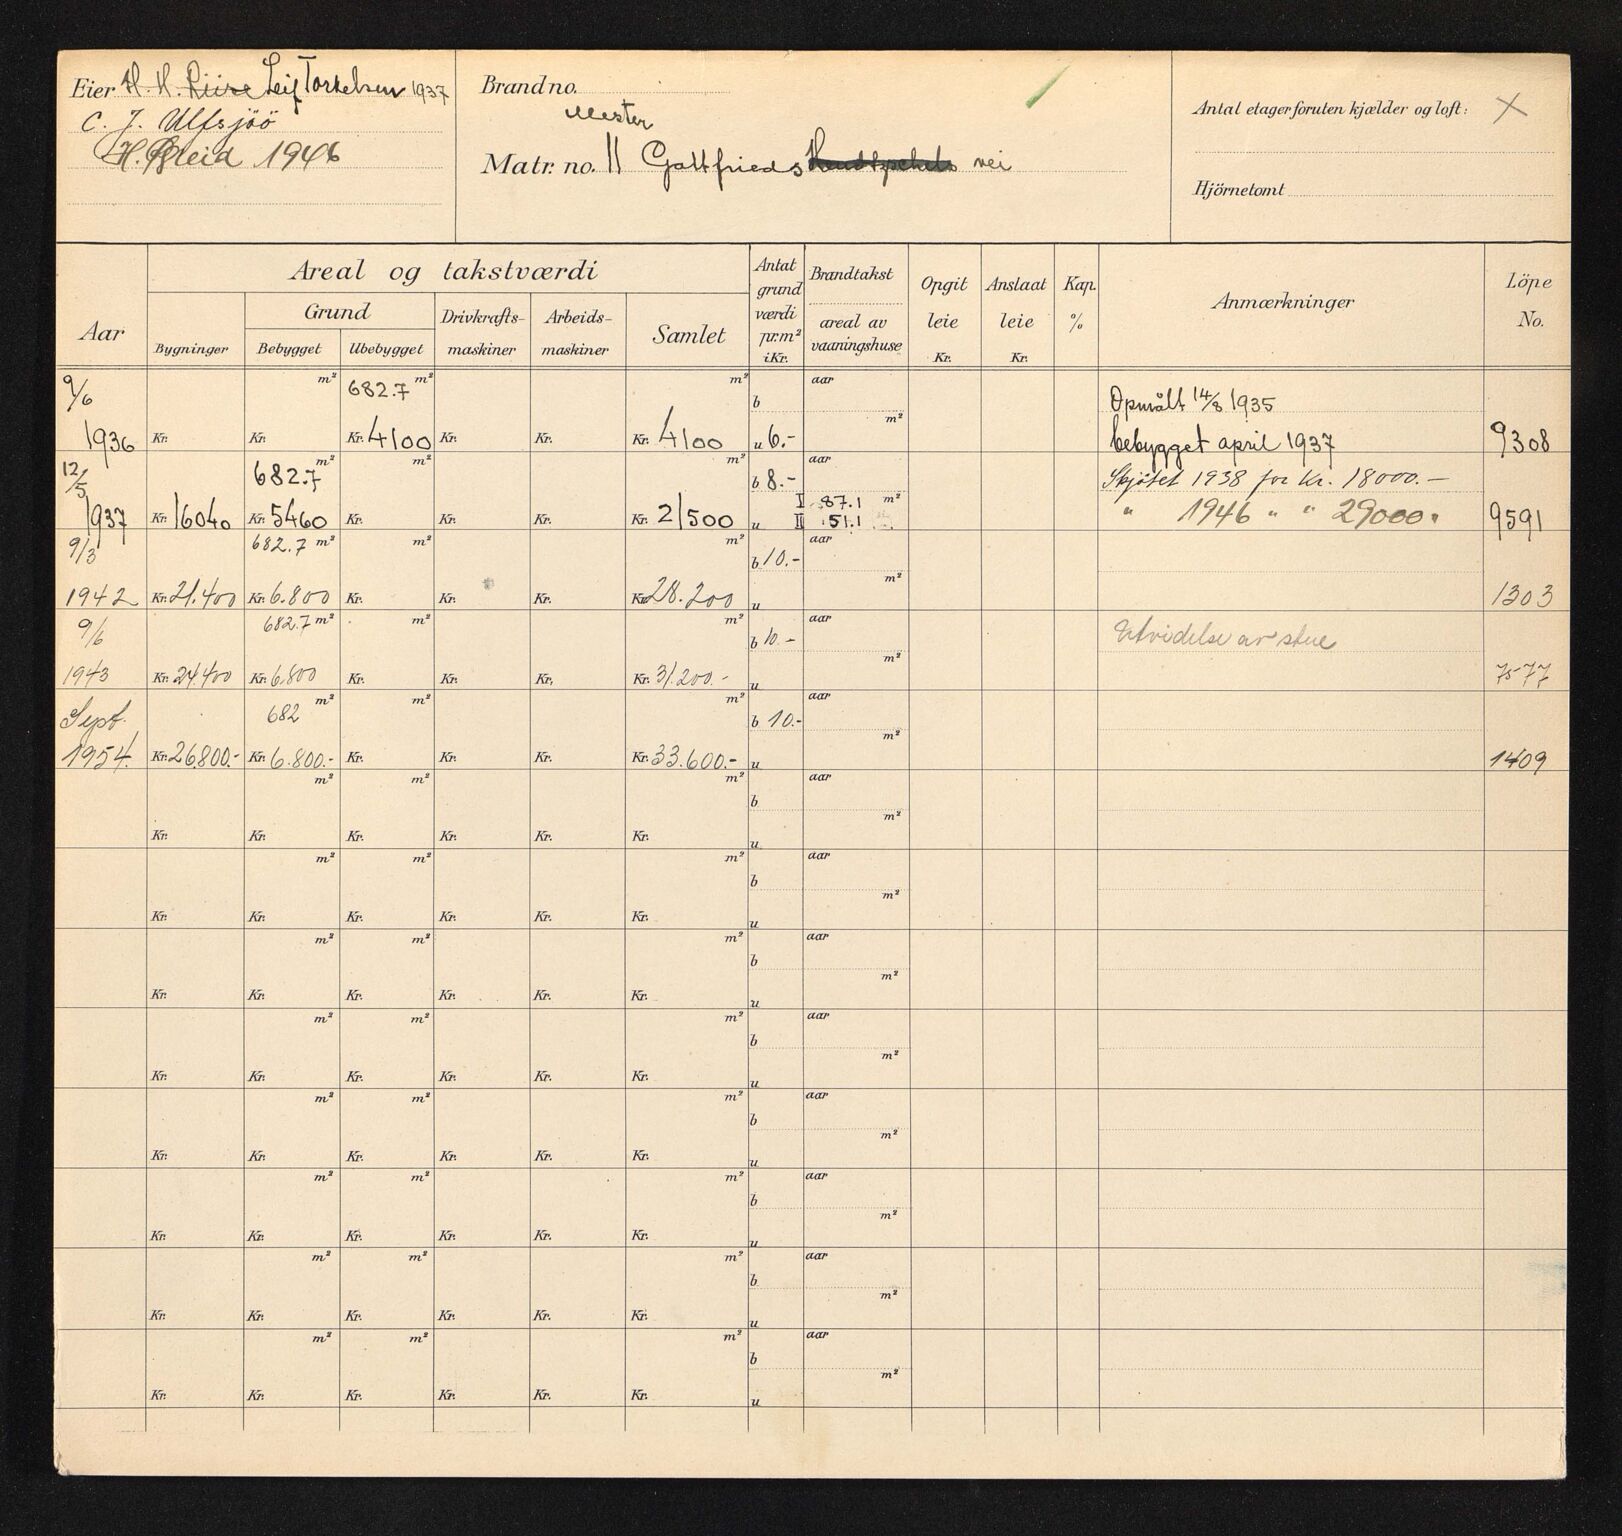 Eier H. H. Riise Leif Torkelsen 1937
C. J. Ulfsjöö
H. Breid 1946
Brand no.
Mester
Matr. no. 11 Gottfrieds vei
Antal etager foruten kjælder og loft: X
Hjörnetomt
Aar
Areal og takstværdi
Grund
Bygninger Bebygget Ubebygget Drivkrafts-maskiner Arbeids-maskiner Samlet
Antat grundværdi pr. m² i Kr.
Brandtakst
areal av vaaningshuse
Opgit leie Kr.
Anslaat leie Kr.
Kap. %
Anmærkninger
Löpe No.
9/6 m² 682.7 m² m² b aar Opmålt 14/8 1935
1936 Kr. Kr. Kr. 4100 Kr. Kr. Kr. 4100 u 6.- m² bebygget april 1937 9308
12/5 682.7 m² m² m² b 8.- aar Skjötet 1938 for Kr. 18000.-
I 87.1 m²
1937 Kr. 16040 Kr. 5460 Kr. Kr. Kr. Kr. 21500 u II 51.1 " 1946 " " 29000 " 9591
9/3 682.7 m² m² m² b 10.- aar
1942 Kr. 21.400 Kr. 6.800 Kr. Kr. Kr. Kr. 28.200 u m² 1303
9/6 682.7 m² m² m² b 10.- aar Utvidelse av stue
1943 Kr. 24.400 Kr. 6.800 Kr. Kr. Kr. Kr. 31.200.- u m² 7577
Sept. 682 m² m² m² b 10.- aar
1954. Kr. 26.800.- Kr. 6.800.- Kr. Kr. Kr. Kr. 33.600.- u m² 1409
m² m² m² b aar
Kr. Kr. Kr. Kr. Kr. Kr. u m²
m² m² m² b aar
Kr. Kr. Kr. Kr. Kr. Kr. u m²
m² m² m² b aar
Kr. Kr. Kr. Kr. Kr. Kr. u m²
m² m² m² b aar
Kr. Kr. Kr. Kr. Kr. Kr. u m²
m² m² m² b aar
Kr. Kr. Kr. Kr. Kr. Kr. u m²
m² m² m² b aar
Kr. Kr. Kr. Kr. Kr. Kr. u m²
m² m² m² b aar
Kr. Kr. Kr. Kr. Kr. Kr. u m²
m² m² m² b aar
Kr. Kr. Kr. Kr. Kr. Kr. u m²